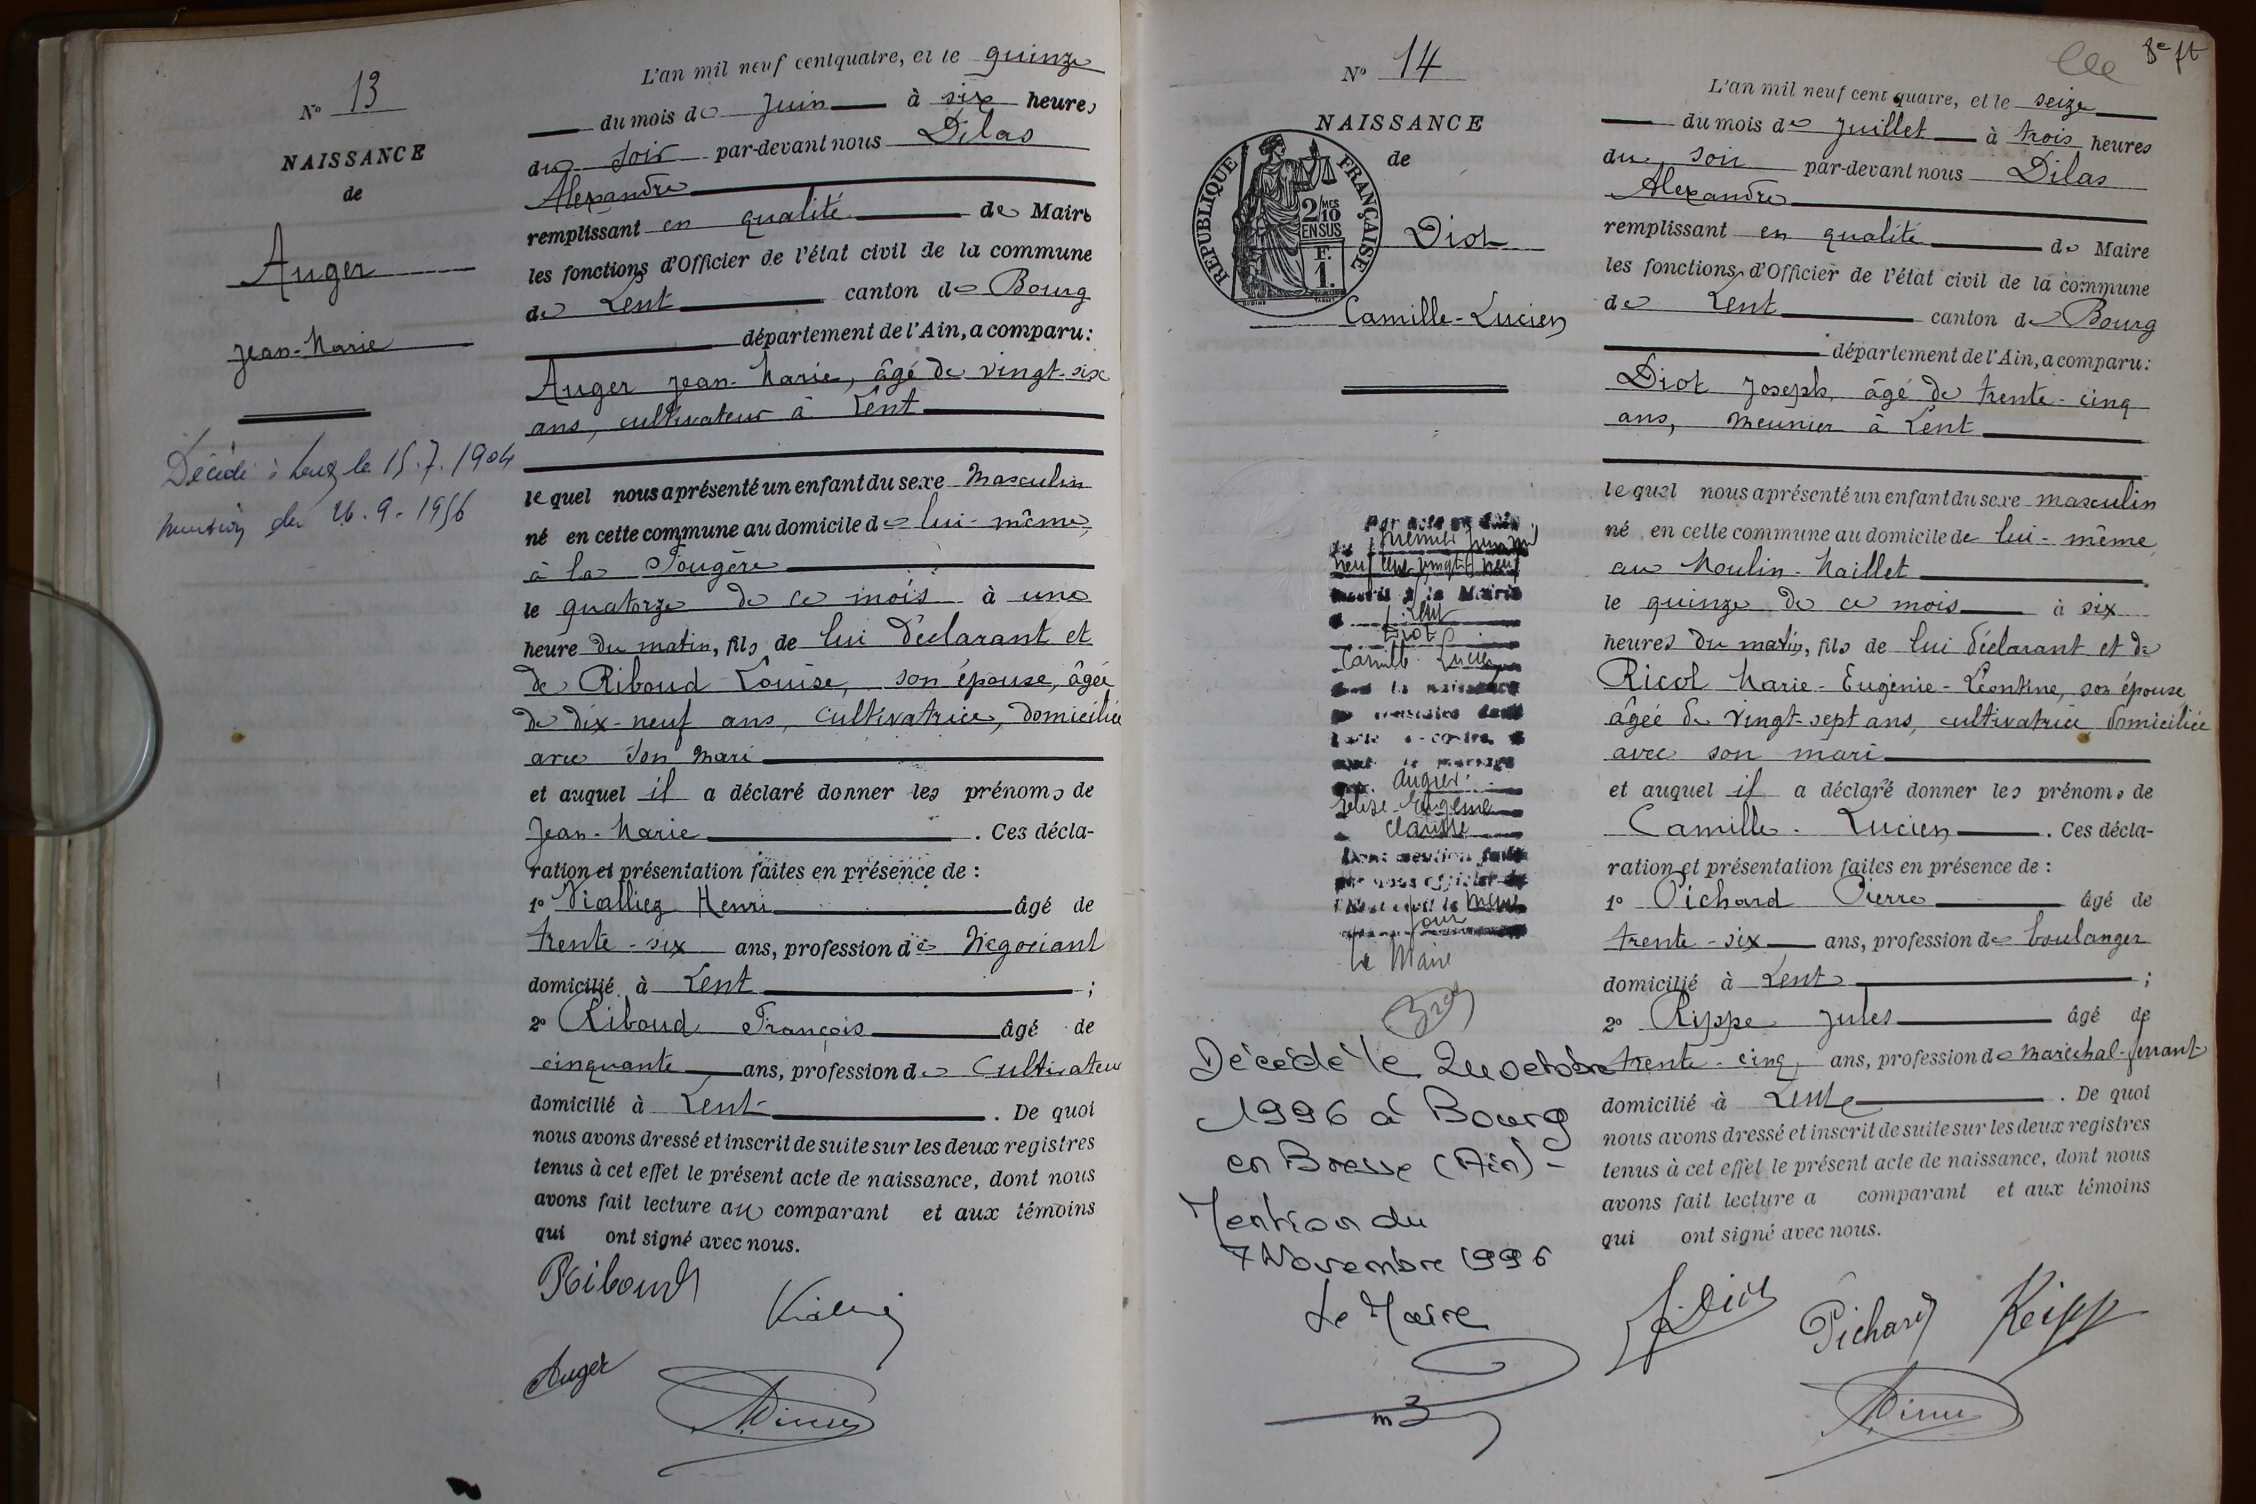 N° 13
NAISSANCE
de
Auger
Jean-Marie
Décédé à Lent le 15.7.1904
mention du 26.9.1956
L'an mil neuf cent quatre, et le quinze
du mois de Juin à six heures
du soir par-devant nous Dilas
Alexandre
remplissant en qualité de Maire
les fonctions d'Officier de l'état civil de la commune
de Lent canton de Bourg
département de l'Ain, a comparu:
Auger Jean-Marie, âgé de vingt-six
ans, cultivateur à Lent
lequel nous a présenté un enfant du sexe Masculin
né en cette commune au domicile de lui-même,
à la Fougère
le quatorze de ce mois à une
heure du matin, fils de lui déclarant et
de Riboud Louise, son épouse, âgée
de dix-neuf ans, cultivatrice, domiciliée
avec son mari
et auquel il a déclaré donner les prénoms de
Jean-Marie. Ces décla-
ration et présentation faites en présence de :
1° Vialliez Henri âgé de
trente-six ans, profession de Négociant
domicilié à Lent ;
2° Riboud François âgé de
cinquante ans, profession de Cultivateur
domicilié à Lent. De quoi
nous avons dressé et inscrit de suite sur les deux registres
tenus à cet effet le présent acte de naissance, dont nous
avons fait lecture au comparant et aux témoins
qui ont signé avec nous.
Riboud
Auger
8e ft
N° 14
NAISSANCE
de
RÉPUBLIQUE FRANÇAISE
2/10
EN SUS
F.
1.
Diot
Camille-Lucien
Par acte en date
du premier juin mil
neuf cent vingt neuf
à la Mairie
Lent
Diot
Camille Lucien
dont la naissance
Augier
Eugénie
Claudie
Dont mention faite
par nous officier de
l'état civil le même
jour
Le Maire
Décédé le 24 octobre
1996 à Bourg
en Bresse (Ain) -
Mention du
7 Novembre 1996
Le Maire
L'an mil neuf cent quatre, et le seize
du mois de Juillet à trois heures
du soir par-devant nous Dilas
Alexandre
remplissant en qualité de Maire
les fonctions d'Officier de l'état civil de la commune
de Lent canton de Bourg
département de l'Ain, a comparu:
Diot Joseph, âgé de trente-cinq
ans, meunier à Lent
lequel nous a présenté un enfant du sexe masculin
né en cette commune au domicile de lui-même,
au Moulin-Maillet
le quinze de ce mois à six
heures du matin, fils de lui déclarant et de
Ricol Marie-Eugénie-Léontine, son épouse,
âgée de vingt-sept ans, cultivatrice domiciliée
avec son mari
et auquel il a déclaré donner les prénoms de
Camille-Lucien. Ces décla-
ration et présentation faites en présence de :
1° Pichard Pierre âgé de
trente-six ans, profession de boulanger
domicilié à Lent ;
2° Rippe Jules âgé de
trente-cinq, ans, profession de maréchal-ferrant
domicilié à Lent. De quoi
nous avons dressé et inscrit de suite sur les deux registres
tenus à cet effet le présent acte de naissance, dont nous
avons fait lecture a comparant et aux témoins
qui ont signé avec nous.
J. Diot Pichard